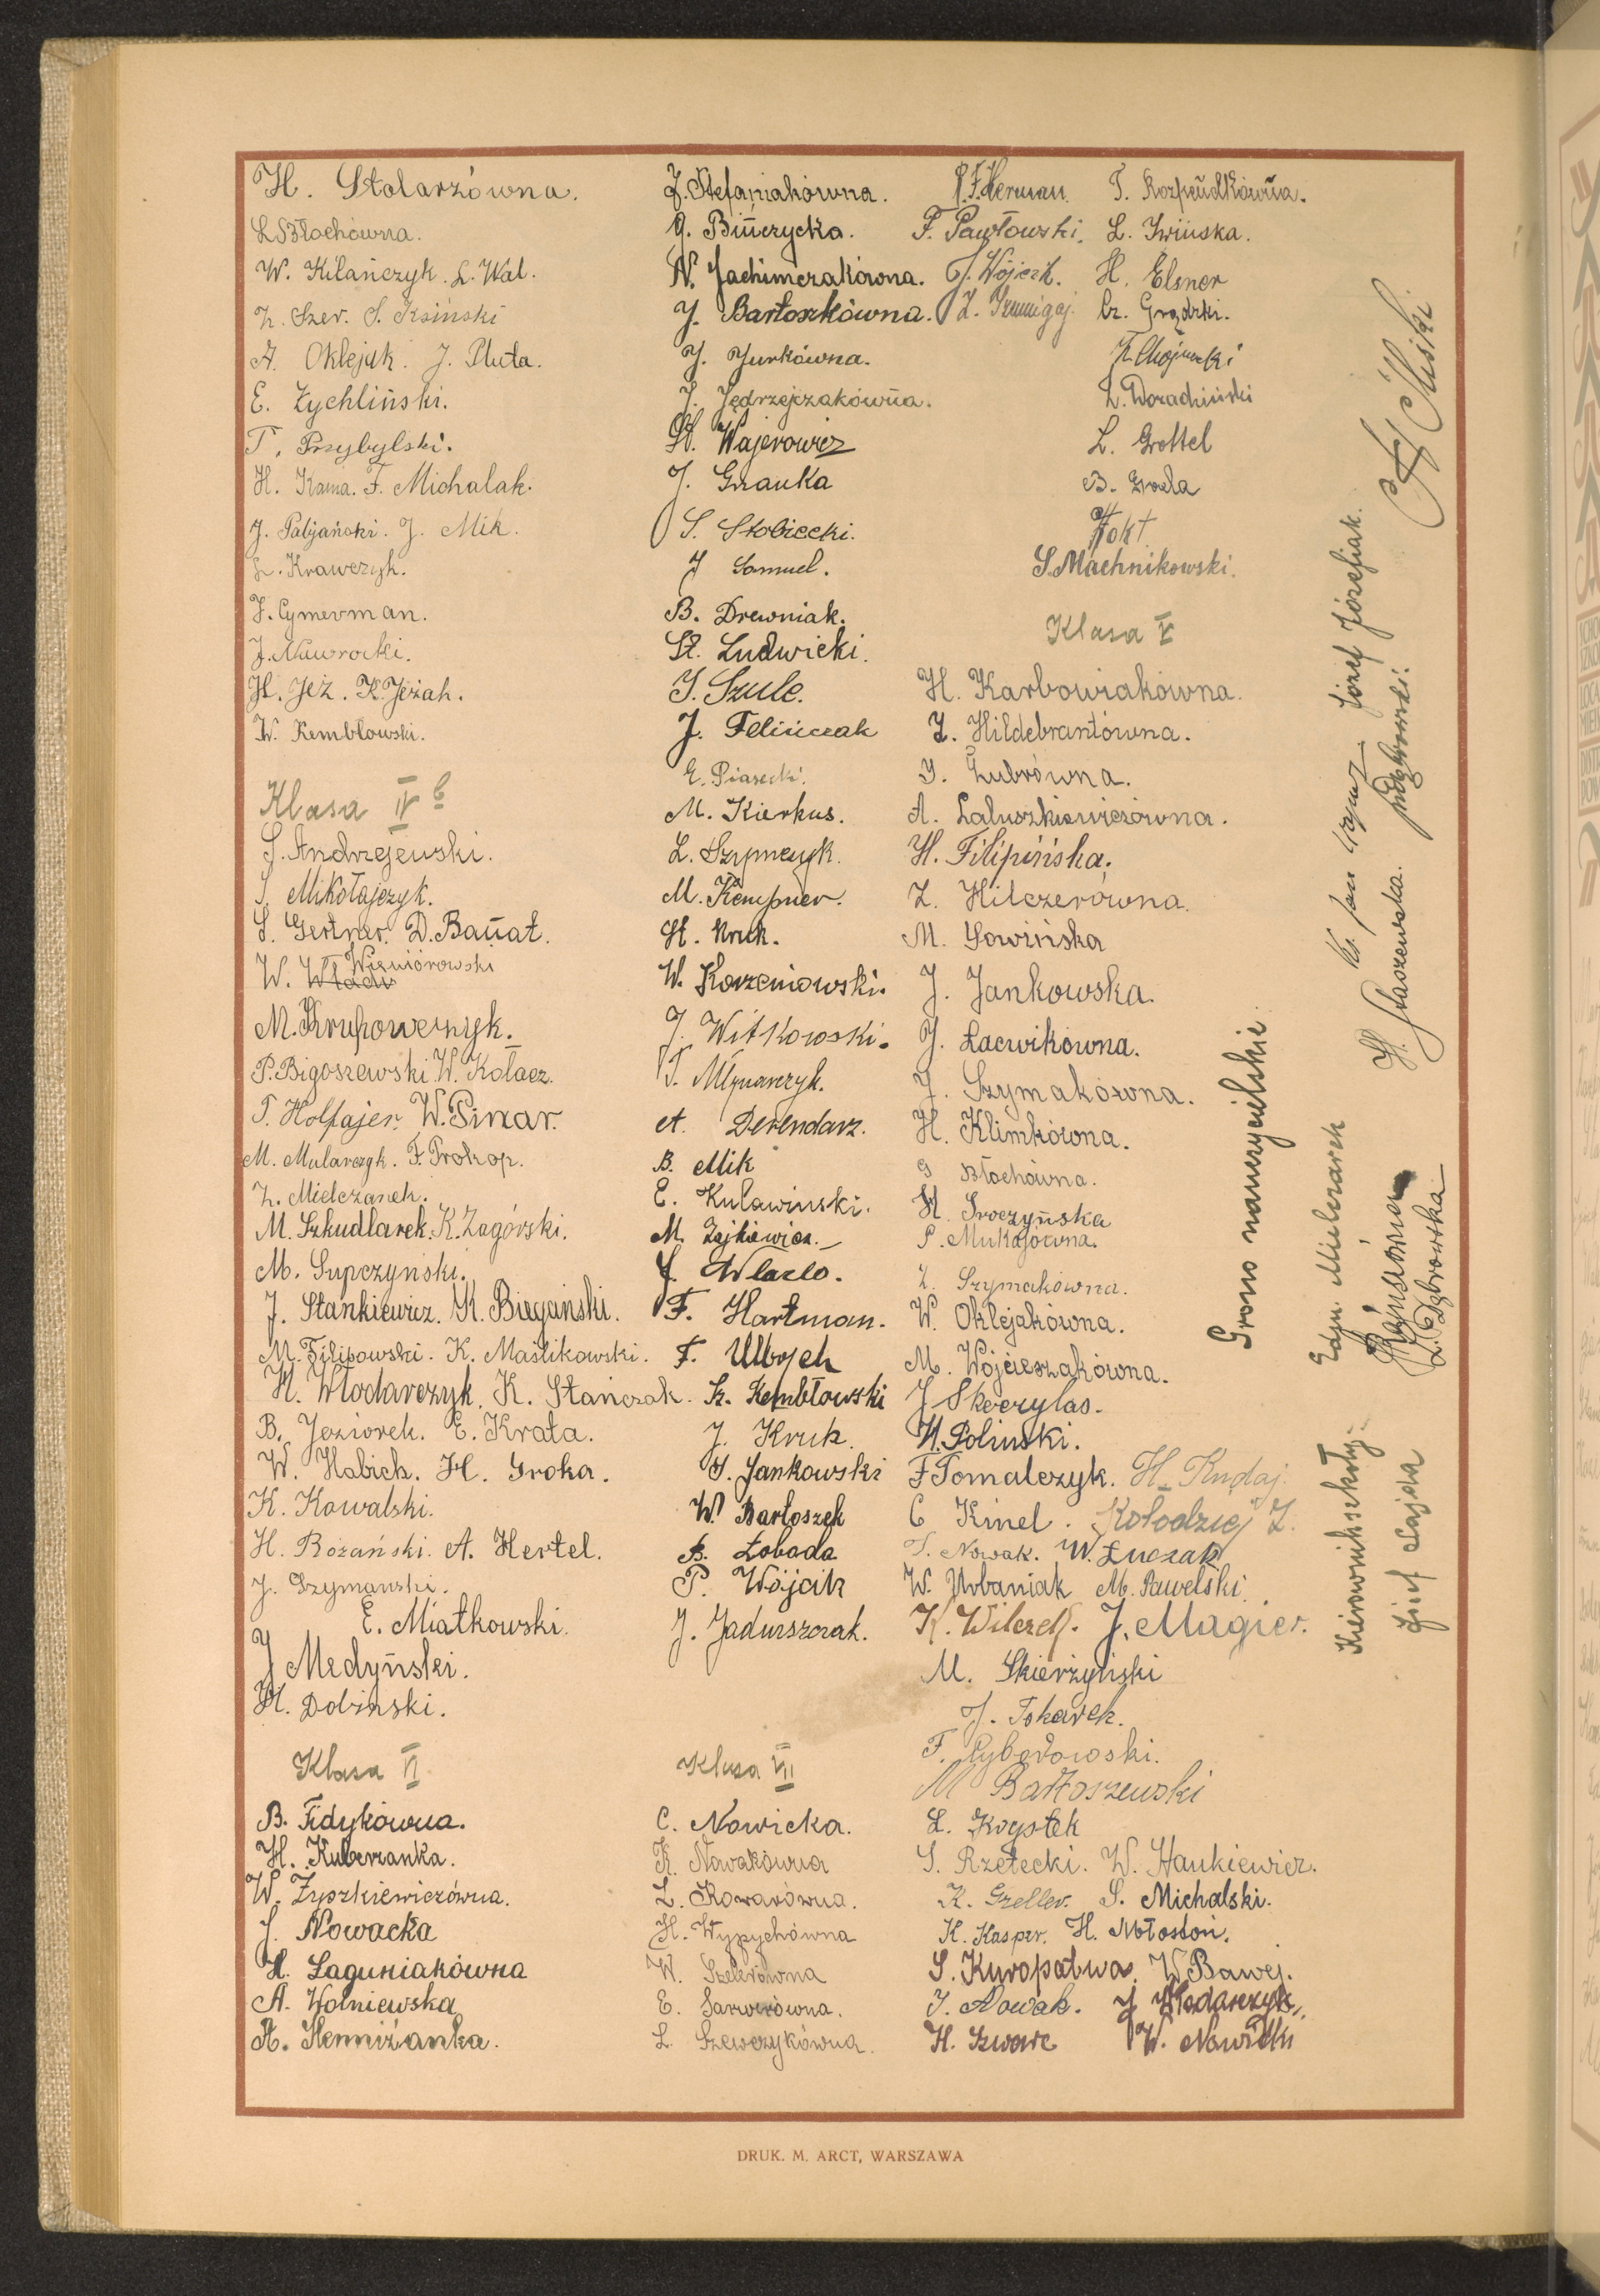 H. Stolarzówna.
L. Błochówna.
W. Kilańczyk. L. Wal.
Z. Szer. S. Ksiński
A. Oklejak. J. Pluta.
E. Żychliński.
T. Przybylski.
H. Kama. F. Michalak.
J. Palijański. J. Mik.
L. Krawczyk.
F. Cymerman.
J. Nawrocki.
H. Jeż. K. Jeżak.
W. Kembłowski.
Klasa IV b
S. Andrzejewski.
S. Mikołajczyk.
S. Gertner. D. Banat.
Wiewiórowski
W. Wład
M. Krupowczyk.
P. Bigoszewski. W. Kołacz.
T. Holfajer. W. Pinzar.
M. Mularczyk. F. Prokop.
Z. Mielczarek.
M. Szkudlarek. K. Zagórski.
M. Supczyński.
J. Stankiewicz. K. Biegański.
M. Filipowski. K. Maślikowski.
H. Włodarczyk. K. Stańczak.
B. Jeziorek. E. Krata.
W. Habich. H. Sroka.
K. Kowalski.
H. Różański. A. Hertel.
J. Szymański.
E. Miatkowski.
J. Medyński.
H. Dobinski.
Klasa VI
B. Fidykówna.
H. Kuberzanka.
W. Zyszkiewiczówna.
J. Nowacka
H. Łaguniakówna
A. Wolniewska
A. Henniżanka.
J. Stefaniakówna.
J. Bińczycka.
N. Jachimczakówna.
J. Bartoszkówna.
J. Jurkówna.
J. Jędrzejczakówna.
St. Wajerowicz
J. Grzanka
S. Stobiecki.
J. Samuel.
B. Drewniak.
St. Ludwicki.
J. Szulc.
J. Felińczak
E. Piasecki.
M. Kierkus.
L. Szymczyk.
M. Kempner.
H. Kruk.
W. Korzeniowski.
J. Witkowski.
T. Młynarczyk.
A. Derendarz.
B. Mik
E. Kulawinski.
M. Zajkiewicz.
J. Wlazło.
F. Hartman.
F. Ulbrych
K. Kembłowski
J. Kruk.
S. Jankowski
W. Bartoszek
B. Łobada
P. Wójcik
J. Jaduszczak.
Klasa VII
C. Nowicka.
K. Nowakówna
Z. Kowarówna.
H. Wypychówna
W. Szelerówna
E. Sarwerówna.
L. Szewczykówna.
F. Herman. T.
F. Pawłowski. L. Iwińska.
J. Wójcik. H. Elsner
Z. Grądzki.
K. Chojnacki
Z. Doradziński
L. Grottel
B. Grzela
Tokt
S. Machnikowski.
Klasa V
H. Karbowiakówna.
Z. Hildebrantówna.
J. Żubrówna.
A. Łałuszkiewiczówna.
H. Filipińska.
Z. Hilczerówna.
M. Sowińska
J. Jankowska.
J. Lacwikówna.
J. Szymakówna.
H. Klimkówna.
G. Błochówna.
H. Sroczyńska
P. Mukajówna.
Z. Szymakówna.
W. Oklejakówna.
M. Wojcieszakówna.
J. Skoczylas.
H. Polinski.
F. Tomalczyk. H. Kudaj.
C. Kinel. Kołodziej Z.
S. Nowak. W. Łuczak
W. Urbaniak M. Pawelski.
K. Wilczek. J. Magier.
M. Skierżyński
J. Tokarek.
F. Rybędowski.
M Bartoszewski
L. Krystek
S. Rzetecki. W. Hankiewicz.
K. Gzeller. S. Michalski.
K. Kasper. H. Młostoń.
S. Kuropatwa. W. Bawej.
J. Nowak. J. Włodarczyk.
H. Szwarc W. Nowicki
Grono nauczycielskie.
Kierownik szkoły:
Józef Łajda
Edm. Mielczarek
L. Dąbrowska
Ks. Jan
H. Staszewska.
Józef Józefiak.
DRUK. M. ARCT, WARSZAWA